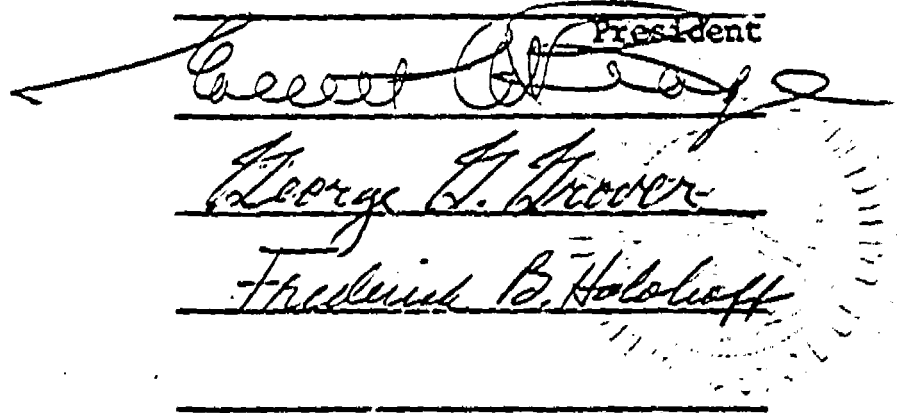 President
George G. Grover
Frederick B. Holoboff